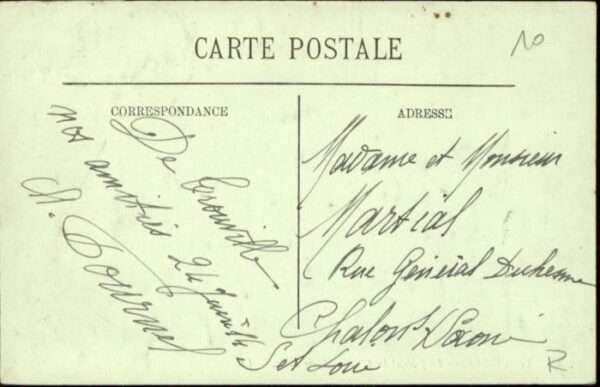 CARTE POSTALE
10
CORRESPONDANCE
De Trouville
nos amitiés 24 Juin
A. Tournel
ADRESSE
Madame et Monsieur
Martial
Rue Général Duhesme
Chalon s/ Saône
S et Loire
R.